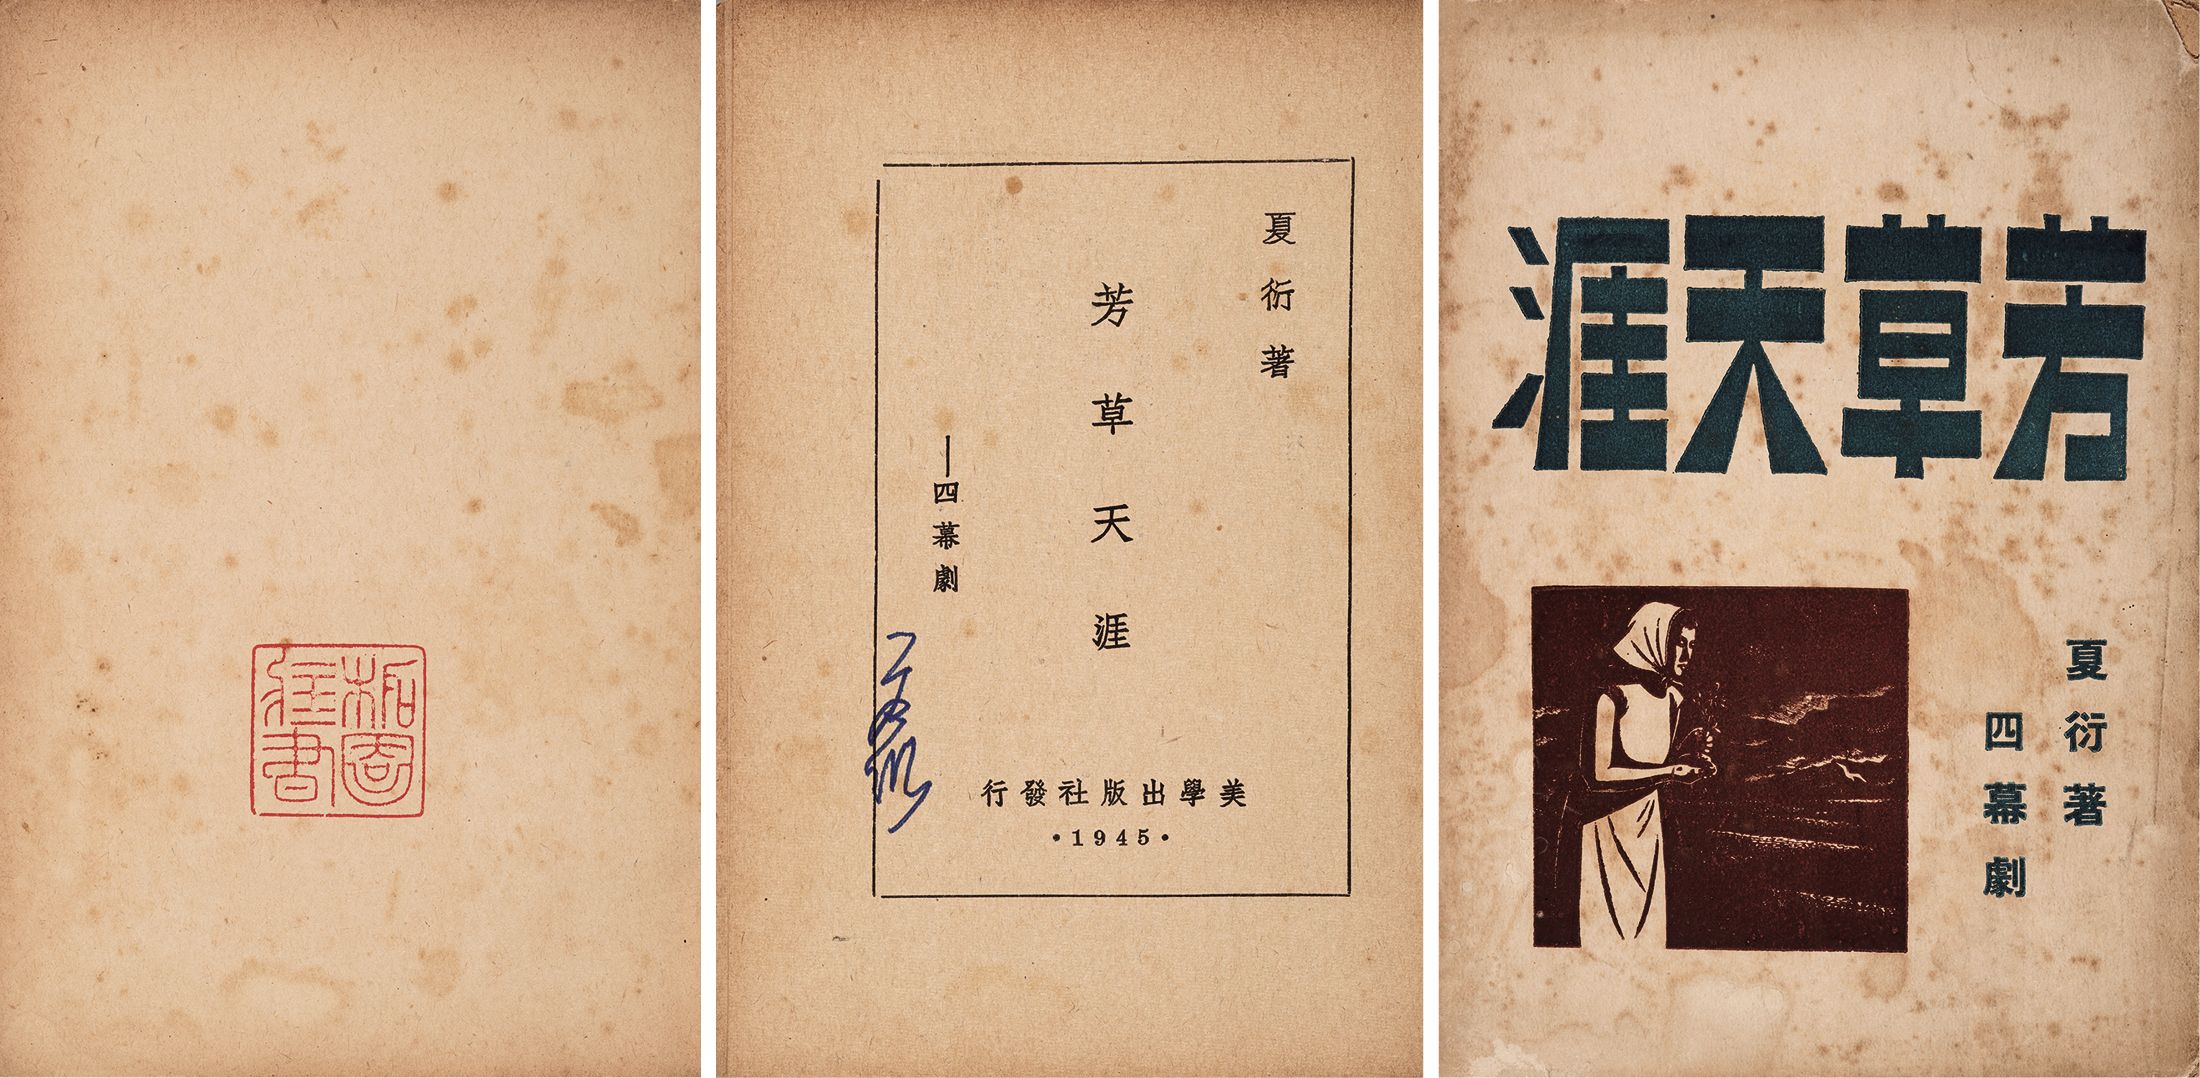 芳草天涯
夏衍著
四幕劇
夏衍著
芳草天涯
—四幕劇
美學出版社發行
•1945•